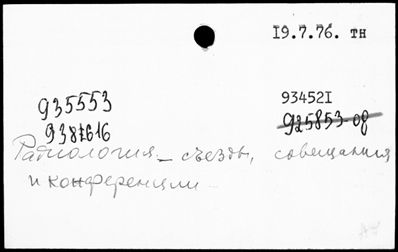 19.7.76. тн
935553 934521
938616 925853-08
Радиология - съезды, совещания
и конференции